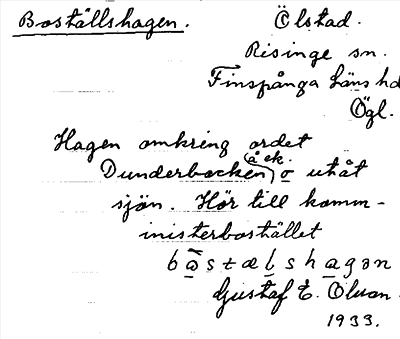 Boställshagen. Ölstad.
Risinge sn.
Finspånga läns hd
Ögl.
Hagen omkring ordet
åck.
Dunderbacken o utåt
sjön. Hör till komm-
inisterbostället
båstælshagən
Gustaf E. Olson.
1933.